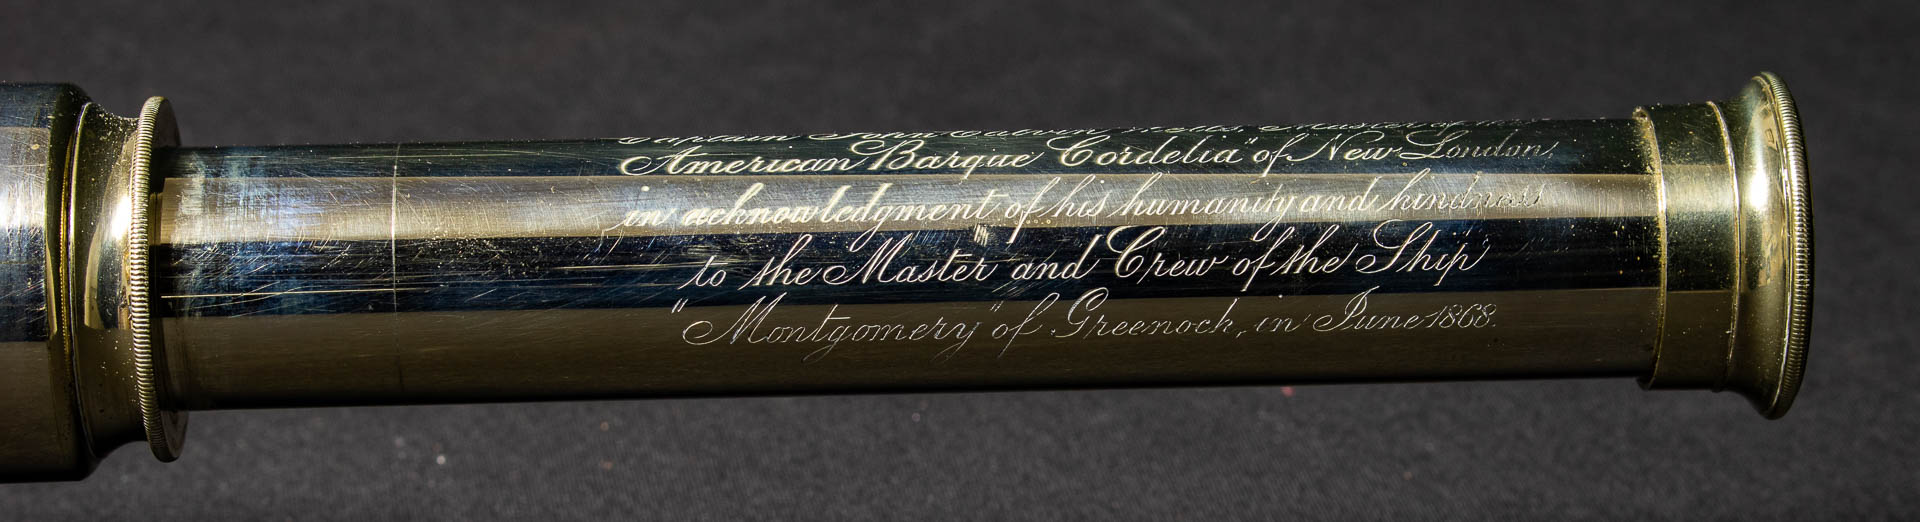 Captain John Calvin Wells, Master of the
American Barque Cordelia" of New London,
in acknowledgment of his humanity and kindness
to the Master and Crew of the Ship
"Montgomery" of Greenock, in June 1868.